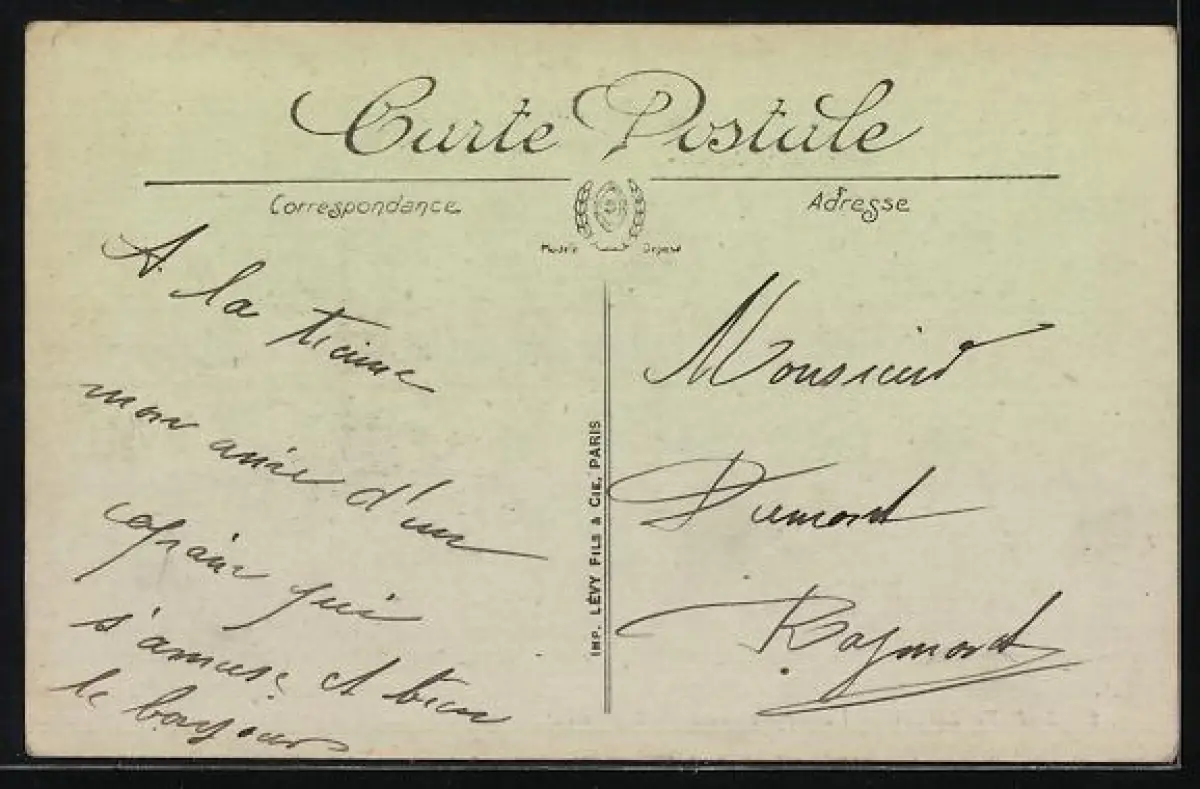 Carte Postale
Correspondance
Adresse
Musée
A la tienne
mon amie d'un
copain qui
s'amuse et bien
le bonjour
IMP. LÉVY FILS & CIE, PARIS
Monsieur
Dumont
Raymond